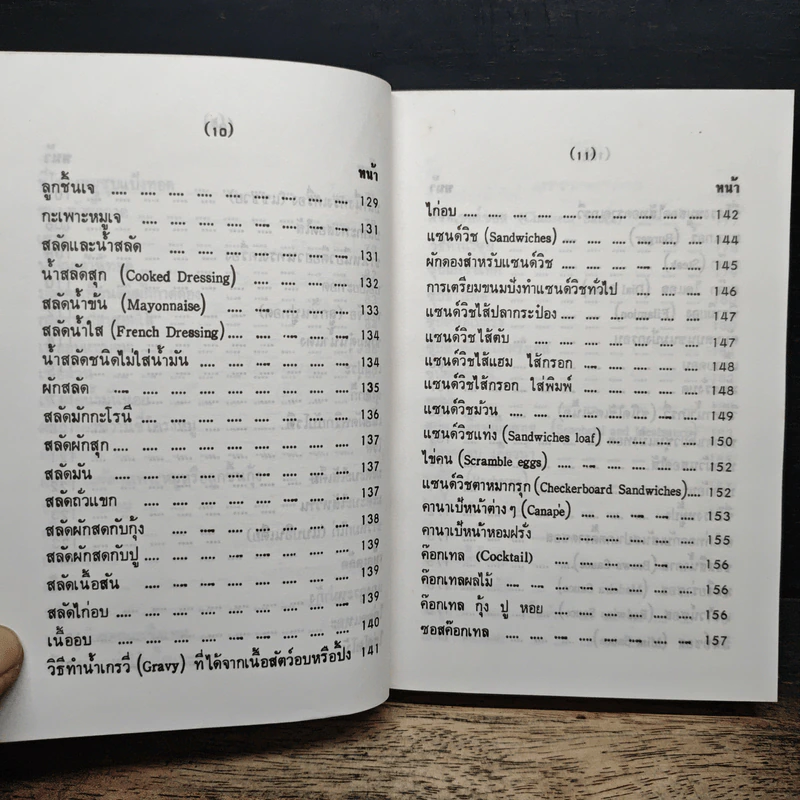 (10)
หน้า
ลูกชิ้นเจ .... .... .... .... .... .... .... .... .... 129
กะเพาะหมูเจ .... .... .... .... .... .... .... .... 131
สลัดและน้ำสลัด .... .... .... .... .... .... .... .... 131
น้ำสลัดสุก (Cooked Dressing) .... .... .... .... 132
สลัดน้ำข้น (Mayonnaise) .... .... .... .... .... 133
สลัดน้ำใส (French Dressing) .... .... .... .... .... 134
น้ำสลัดชนิดไม่ใส่น้ำมัน .... .... .... .... .... .... 134
ผักสลัด .... .... .... .... .... .... .... .... .... 135
สลัดมักกะโรนี .... .... .... .... .... .... .... .... 136
สลัดผักสุก .... .... .... .... .... .... .... .... .... 137
สลัดมัน .... .... .... .... .... .... .... .... .... 137
สลัดถั่วแขก .... .... .... .... .... .... .... .... 137
สลัดผักสดกับกุ้ง .... .... .... .... .... .... .... 138
สลัดผักสดกับปู .... .... .... .... .... .... .... .... 139
สลัดเนื้อสัน .... .... .... .... .... .... .... .... 139
สลัดไก่อบ .... .... .... .... .... .... .... .... 139
เนื้ออบ .... .... .... .... .... .... .... .... .... 140
วิธีทำน้ำเกรวี่ (Gravy) ที่ได้จากเนื้อสัตว์อบหรือปิ้ง 141
(11)
หน้า
ไก่อบ .... .... .... .... .... .... .... .... .... .... 142
แซนด์วิช (Sandwiches) .... .... .... .... .... .... 144
ผักดองสำหรับแซนด์วิช .... .... .... .... .... .... 145
การเตรียมขนมปังทำแซนด์วิชทั่วไป .... .... .... .... 146
แซนด์วิชไส้ปลากระป๋อง .... .... .... .... .... .... 147
แซนด์วิชไส้ตับ .... .... .... .... .... .... .... .... 147
แซนด์วิชไส้แฮม ไส้กรอก .... .... .... .... .... 148
แซนด์วิชไส้กรอก ใส่พิมพ์ .... .... .... .... .... 148
แซนด์วิชม้วน .... .... .... .... .... .... .... .... 149
แซนด์วิชแท่ง (Sandwiches loaf) .... .... .... .... 150
ไข่คน (Scramble eggs) .... .... .... .... .... .... 152
แซนด์วิชตาหมากรุก (Checkerboard Sandwiches) .... 152
คานาเป้หน้าต่างๆ (Canape) .... .... .... .... .... 153
คานาเป้หน้าหอมฝรั่ง .... .... .... .... .... .... 155
ค๊อกเทล (Cocktail) .... .... .... .... .... .... 156
ค๊อกเทลผลไม้ .... .... .... .... .... .... .... .... 156
ค๊อกเทล กุ้ง ปู หอย .... .... .... .... .... .... 156
ซอสค๊อกเทล .... .... .... .... .... .... .... .... 157